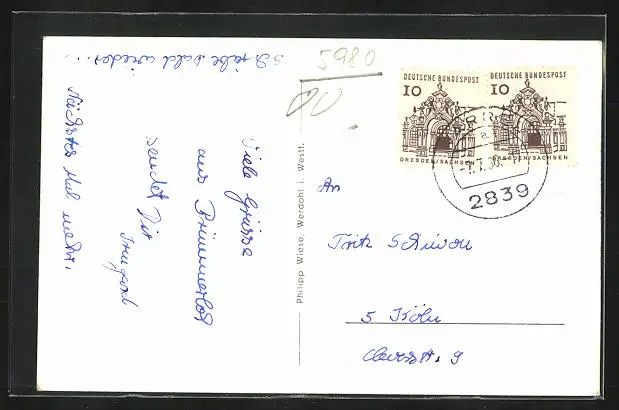 Schreibe bald wieder...
5980
DEUTSCHE BUNDESPOST
10
DRESDEN/SACHSEN
DEUTSCHE BUNDESPOST
10
DRESDEN/SACHSEN
a
2839
Viele Grüsse
aus
sendet Dir
Irmgard
Nächstes Mal mehr.
Philipp Wiese, Werdohl i. Westf.
An
Fritz
5 Köln
9